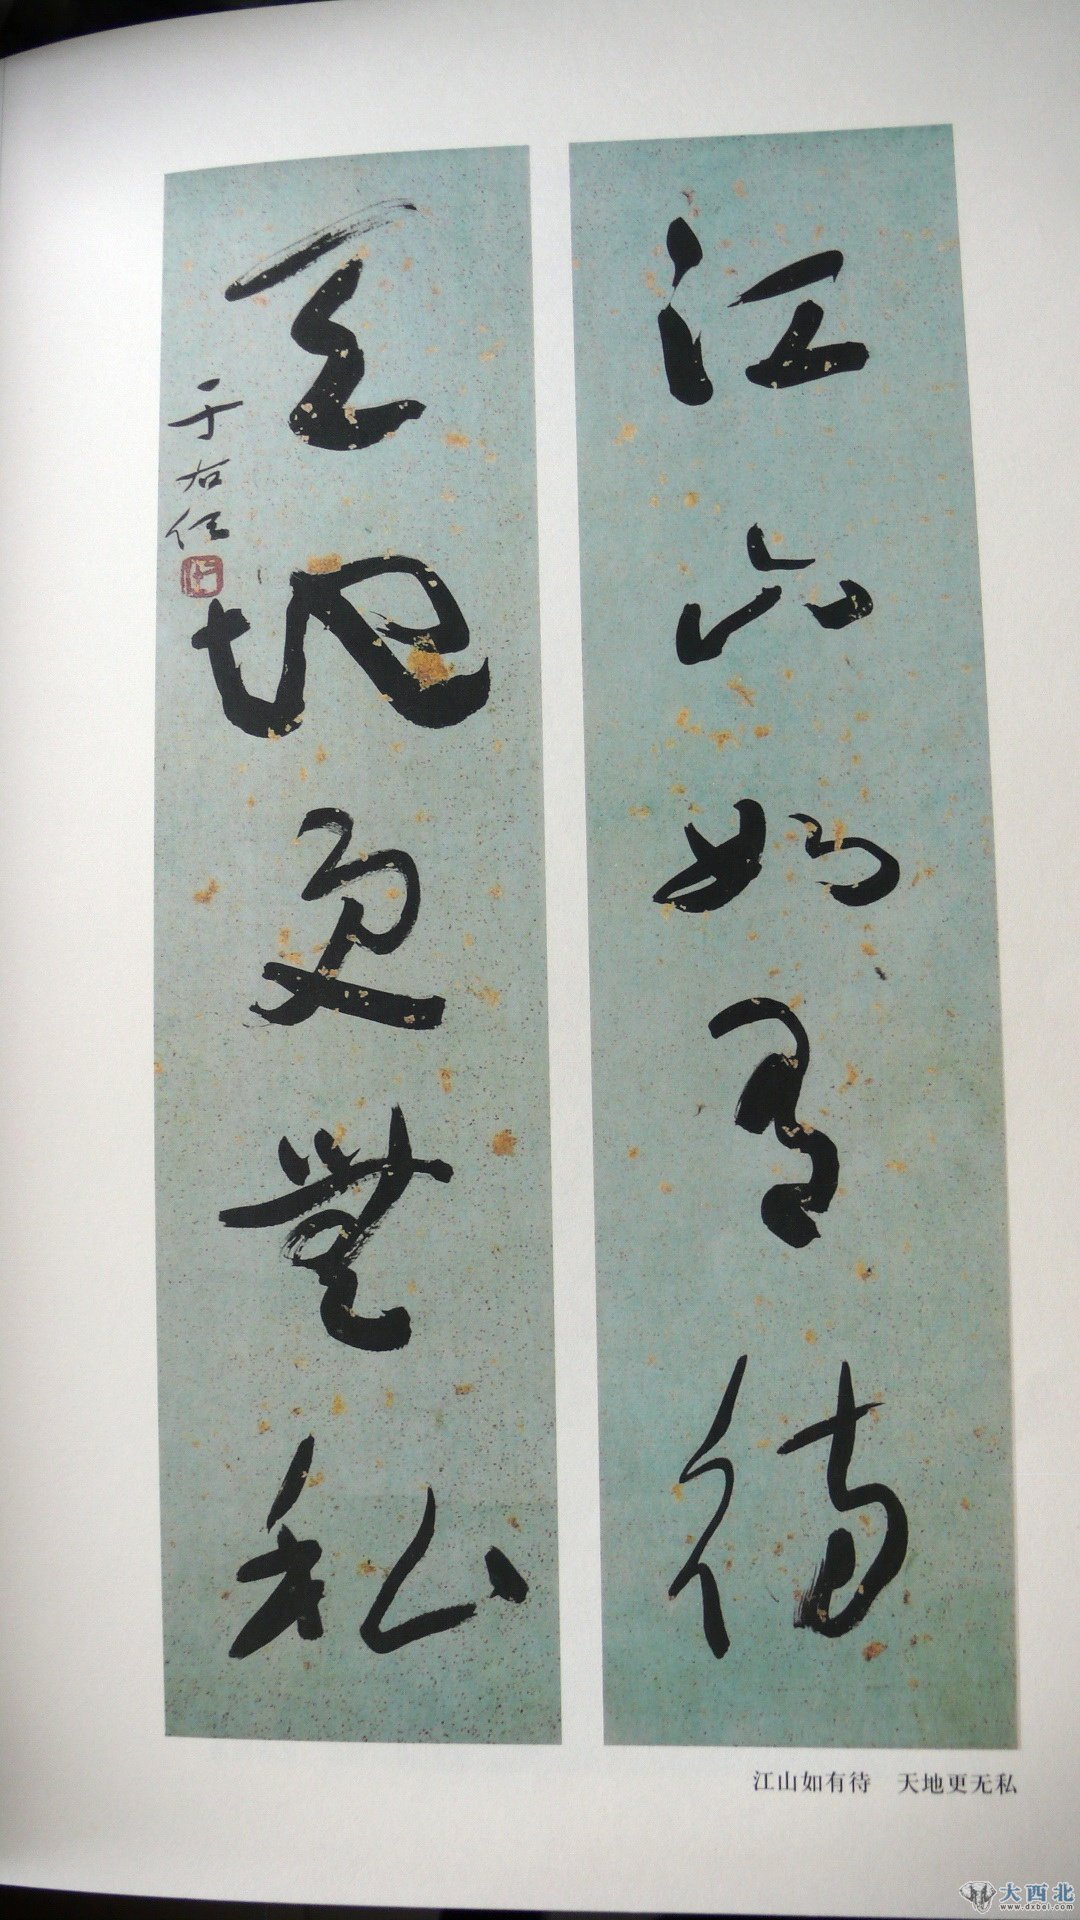 江山如有待
天地更無私
于右任
江山如有待　天地更无私
大西北
www.dxbei.com